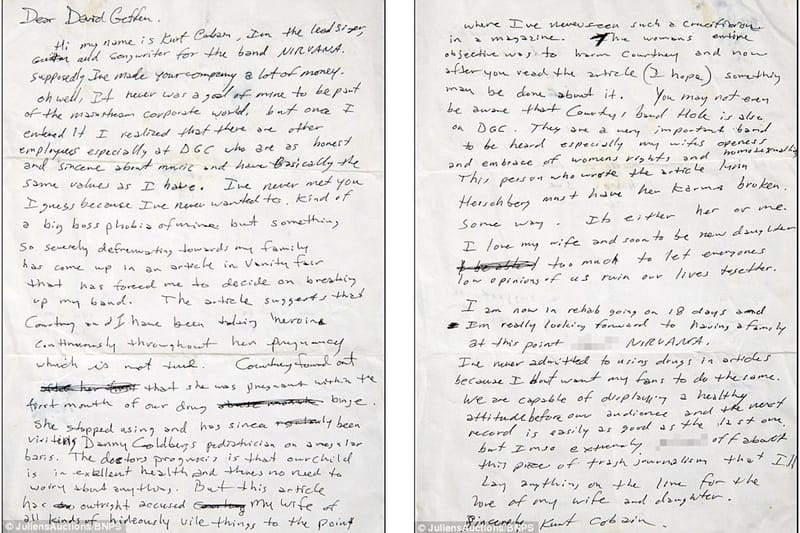 Dear David Geffen.
Hi my name is Kurt Cobain, I'm the lead singer,
guitar and songwriter for the band NIRVANA.
supposedly I've made your company a lot of money.
oh well, It never was a goal of mine to be part
of the mainstream corporate world. but once I
entered it I realized that there are other
employees especially at DGC who are as honest
and sincere about music and have Basically the
same values as I have. I've never met you
I guess because I've never wanted to. Kind of
a big boss phobia of mine but something
so severely defremating towards my family
has come up in an article in Vanity fair
that has forced me to decide on breaking
up my band. The article suggests that
Courtney and I have been taking heroine
continuously throughout her pregnancy
which is not true. Courtney found out
that she was pregnant within the
first month of our drug binge.
She stopped using and has since been
visiting Danny Goldbergs pediatrician on a regular
basis. The doctors prognosis is that our child
is in excellent health and theres no need to
worry about anything. But this article
has outright accused my wife of
all kinds of hideously vile things to the point
© JuliensAuctions/BNPS
where I've never seen such a crucifixion
in a magazine. The womans entire
objective was to harm Courtney and now
after you read the article (I hope) something
may be done about it. You may not even
be aware that Courtneys band Hole is also
on DGC. They are a very important band
to be heard especially my wifes openess
and embrace of womens rights and homosexuality
This person who wrote the article Lynn
Herschberg must have her Karma broken.
Some way. Its either her or me.
I love my wife and soon to be new daughter
too much to let everyones
low opinions of us ruin our lives together.
I am now in rehab going on 18 days and
I'm really looking forward to having a family
at this point NIRVANA.
I've never admitted to using drugs in articles
because I dont want my fans to do the same.
We are capable of displaying a healthy
attitude before our audience and the next
record is easily as good as the last one.
but I'm so extremely off about
this piece of trash journalism that I'll
Lay anything on the line for the
love of my wife and daughter.
Sincerely Kurt Cobain.
© JuliensAuctions/BNPS